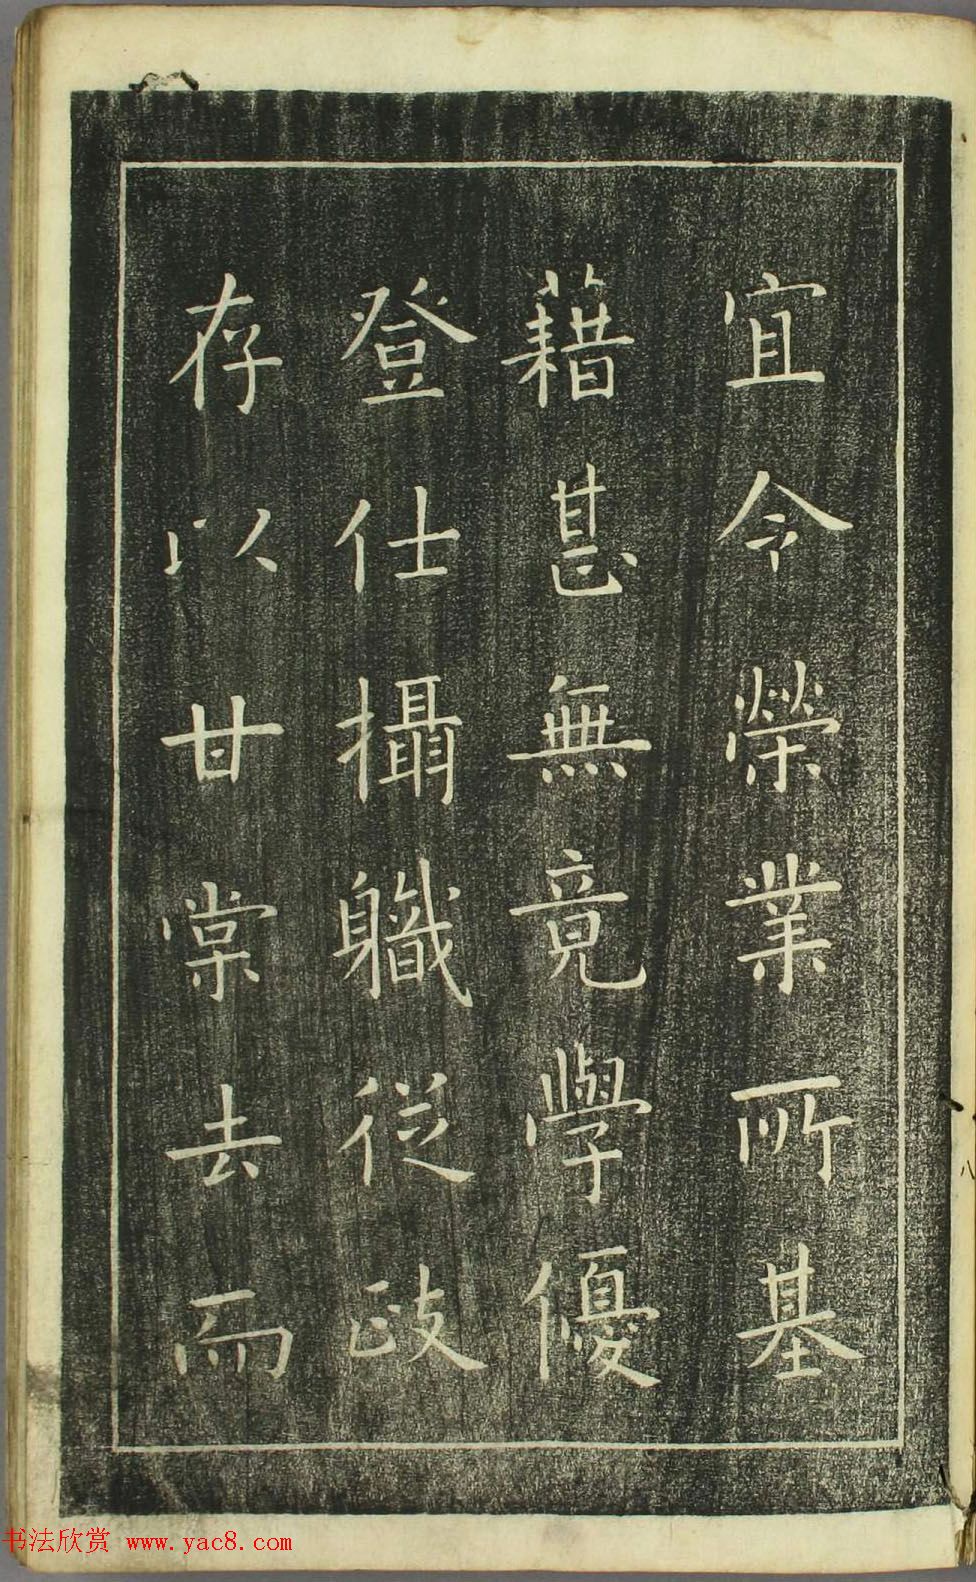 宜令榮業所基
藉甚無竟學優
登仕攝職從政
存以甘棠去而
书法欣赏 www.yac8.com